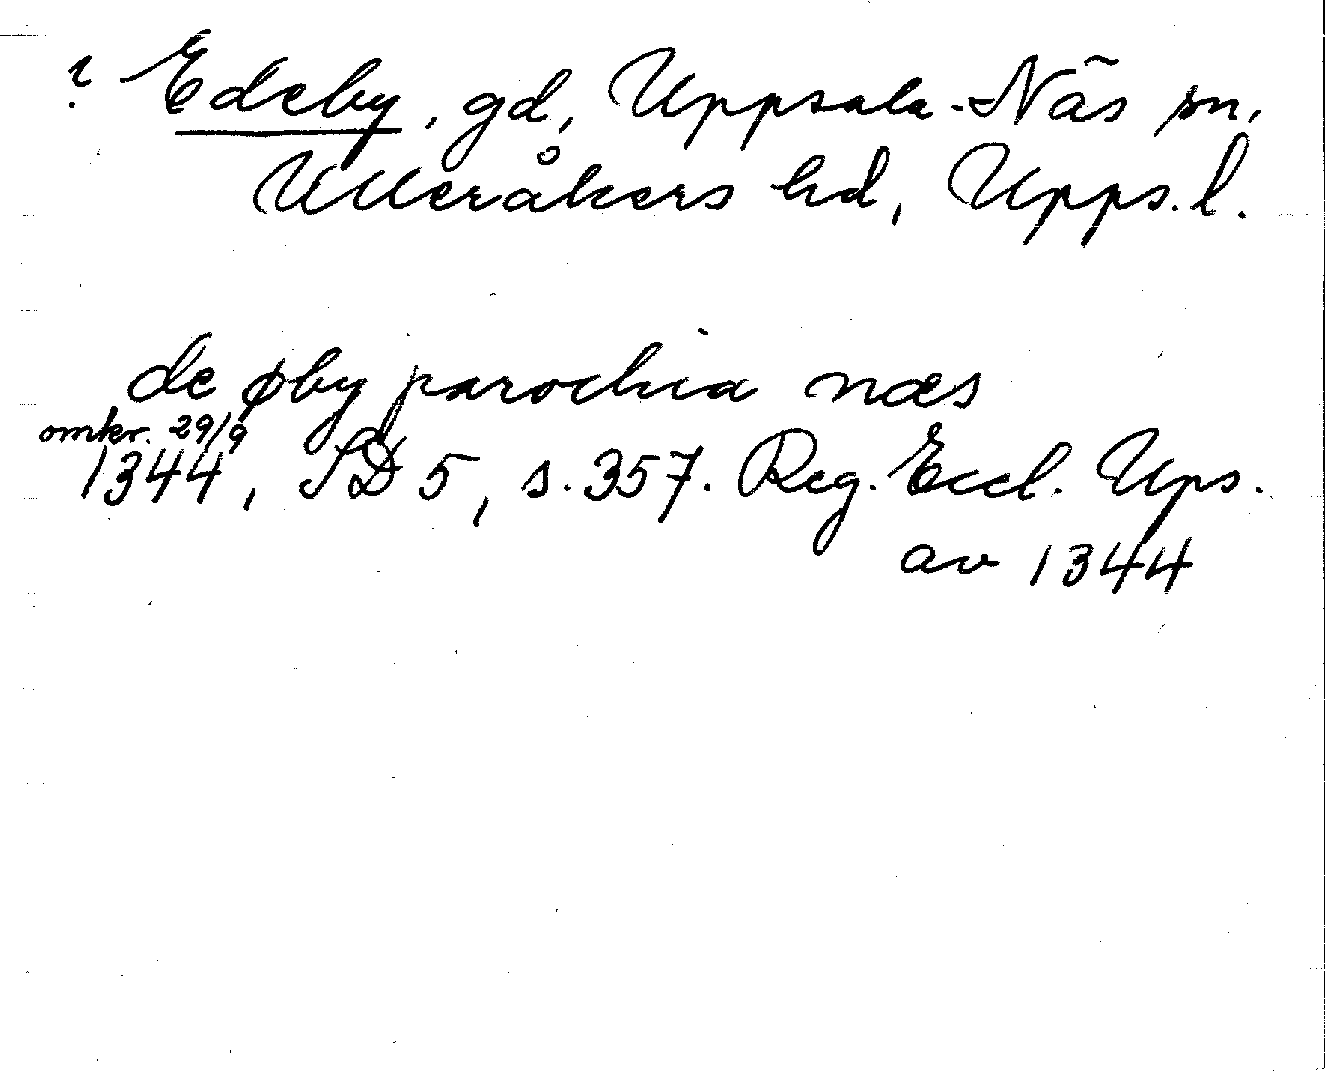 ? Edeby, gd, Uppsala-Näs sn,
Ulleråkers hd, Upps. l.
de øby parochia næs
omkr. 29/9
1344, SD 5, s. 357. Reg. Eccl. Ups.
av 1344